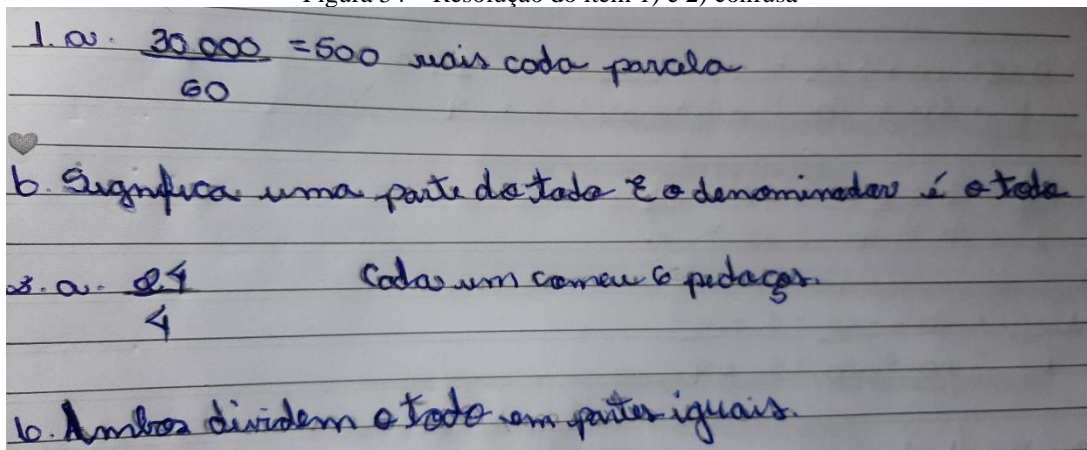 Figura 34 – Resolução do item 1) e 2) confusa
1. a. 30 000 = 500 reais cada parcela
60
b. Significa uma parte do todo E o denominador é o todo
2. a. 24 Cada um comeu 6 pedaços.
4
b. Ambos dividem o todo em partes iguais.